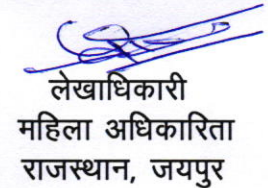 लेखाधिकारी
महिला अधिकारिता
राजस्थान, जयपुर